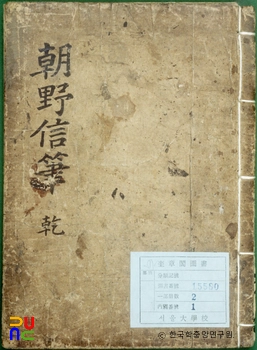 朝野信筆
乾
奎章閣圖書
15560
2
1
서울大學校
© 한국학중앙연구원